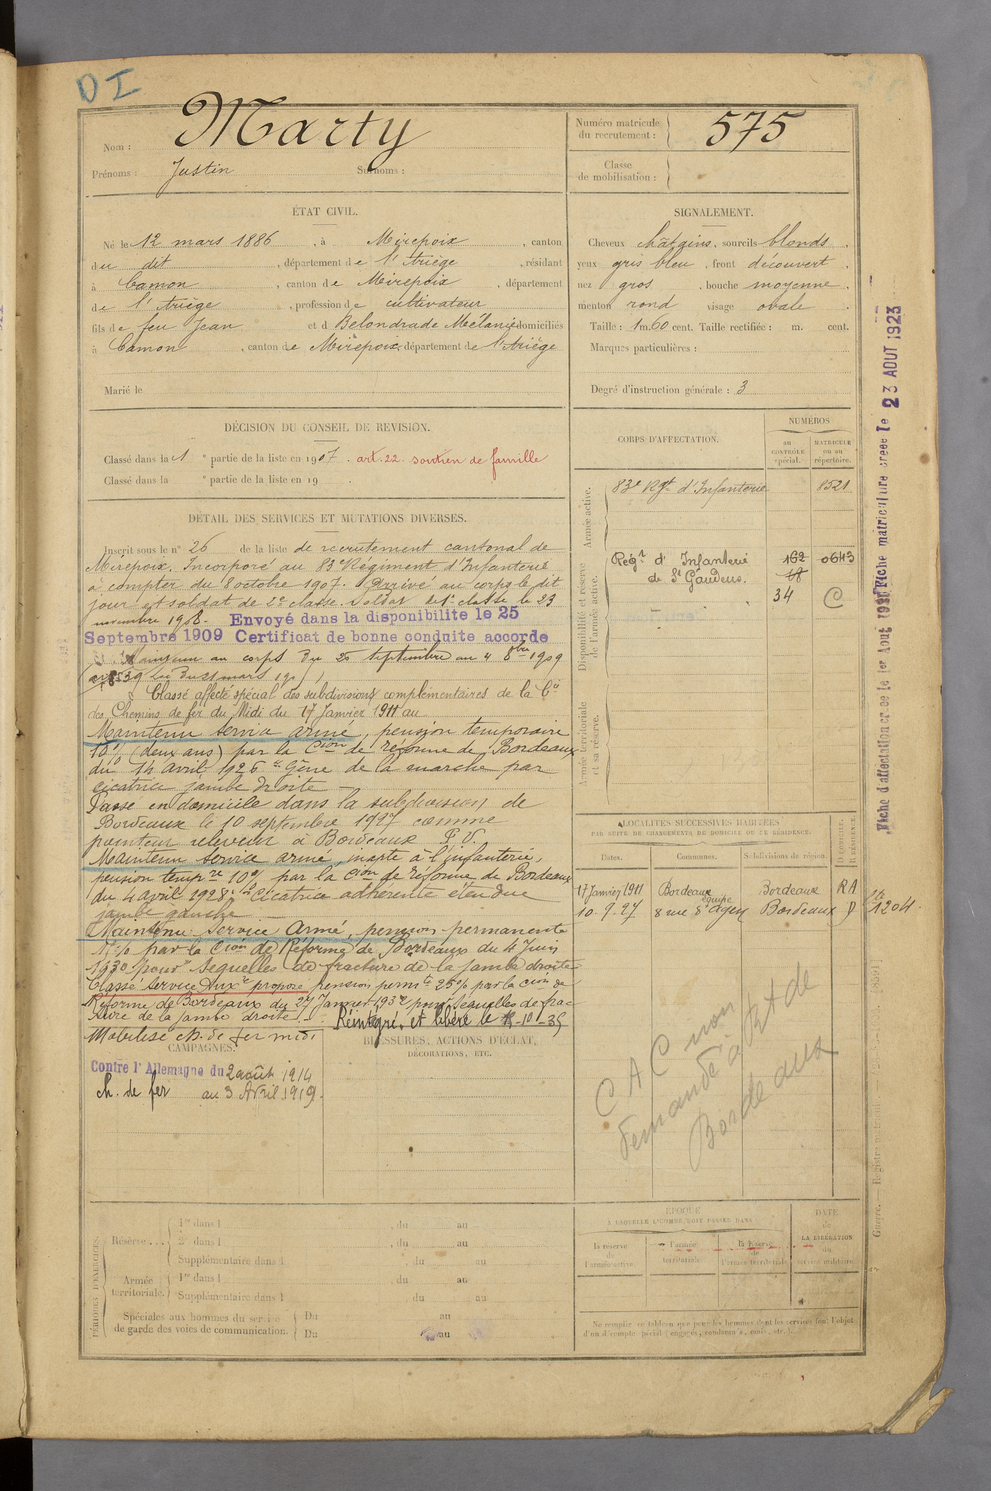 DI
Nom : Marty
Prénoms : Justin Surnoms :
Numéro matricule du recrutement : 575
Classe de mobilisation :
ÉTAT CIVIL.
Né le 12 mars 1886, à Mirepoix, canton
du dit, département de l'Ariège, résidant
à Camon, canton de Mirepoix, département
de l'Ariège, profession de cultivateur
fils de feu Jean et d Belondrade Mélanie domiciliés
à Camon, canton de Mirepoix, département de l'Ariège
Marié le
SIGNALEMENT.
Cheveux châtains, sourcils blonds
yeux gris bleu, front découvert
nez gros, bouche moyenne
menton rond visage ovale
Taille : 1 m. 60 cent. Taille rectifiée : m. cent.
Marques particulières :
Degré d'instruction générale : 3
DÉCISION DU CONSEIL DE REVISION.
Classé dans la 1e partie de la liste en 1907. art. 22. soutien de famille
Classé dans la e partie de la liste en 19 .
DÉTAIL DES SERVICES ET MUTATIONS DIVERSES.
Inscrit sous le n° 26 de la liste de recrutement cantonal de
Mirepoix. Incorporé au 83e Régiment d'Infanterie
à compter du 8 octobre 1907. Arrivé au corps le dit
jour et soldat de 2e classe. Soldat de 1e classe le 23
novembre 1908. Envoyé dans la disponibilité le 25
Septembre 1909 Certificat de bonne conduite accordé
Maintenu au corps du 25 septembre au 4 8bre 1909
Classé affecté spécial des subdivisions complémentaires de la Cie
des Chemins de fer du Midi du 17 Janvier 1911 au
Maintenu service armé, pension temporaire
10% (deux ans) par la Cion de réforme de Bordeaux
du 14 avril 1926 Gêne de la marche par
cicatrice jambe droite
Passé en domicile dans la subdivision de
Bordeaux le 10 septembre 1927 comme
pointeur releveur à Bordeaux P.V.
Maintenu service armé, inapte à l'infanterie,
pension tempre 10% par la Cion de réforme de Bordeaux
du 4 avril 1928. Cicatrice adhérente étendue
jambe gauche
Maintenu Service Armé, pension permanente
par la Cion de Réforme de Bordeaux du 4 Juin
1930 pour Sequelles de fracture de la jambe droite
Classé Service Auxre proposé pension permte 25% par la Cion de
Réforme de Bordeaux du 27 Janvier 1932 pour Sequelles de frac-
ture de la jambe droite.
Réintégré, et libéré le -10-35
Mobilisé ch. de fer midi
CORPS D'AFFECTATION.
NUMÉROS
au CONTRÔLE spécial.
MATRICULE ou au répertoire.
Armée active.
83e Rgt d'Infanterie 8521
Disponibilité et réserve de l'armée active.
Régt d'Infanterie 162 0643
de St Gaudens.
34 C
Armée territoriale et sa réserve.
LOCALITÉS SUCCESSIVES HABITÉES
PAR SUITE DE CHANGEMENTS DE DOMICILE OU DE RÉSIDENCE.
Dates. Communes. Subdivisions de région. D. DOMICILE. R. RÉSIDENCE.
17 Janvier 1911 Bordeaux Bordeaux RA
10-9-27 8 rue St Agen Bordeaux D
1204
CAC non
demandé à Bt de
Bordeaux
CAMPAGNES.
Contre l'Allemagne du 2 août 1914
ch. de fer au 3 Avril 1919.
BLESSURES, ACTIONS D'ÉCLAT,
DÉCORATIONS, ETC.
PÉRIODES D'EXERCICES.
Réserve...
1re dans l , du au
2e dans l , du au
Supplémentaire dans l , du au
Armée territoriale.
1re dans l , du au
Supplémentaire dans l , du au
Spéciales aux hommes du service de garde des voies de communication.
Du au
Du au
ÉPOQUE
À LAQUELLE L'HOMME DOIT PASSER DANS
la réserve de l'armée active.
l'armée territoriale.
la réserve de l'armée territoriale.
DATE de LA LIBÉRATION du service militaire.
Ne remplir ce tableau que pour les hommes dont les services font l'objet
d'un décompte spécial (engagés, condamnés, omis, etc.).
Fiche matriculaire créée le 23 AOUT 1923
Fiche d'affectation créée le 1er Aout 1923